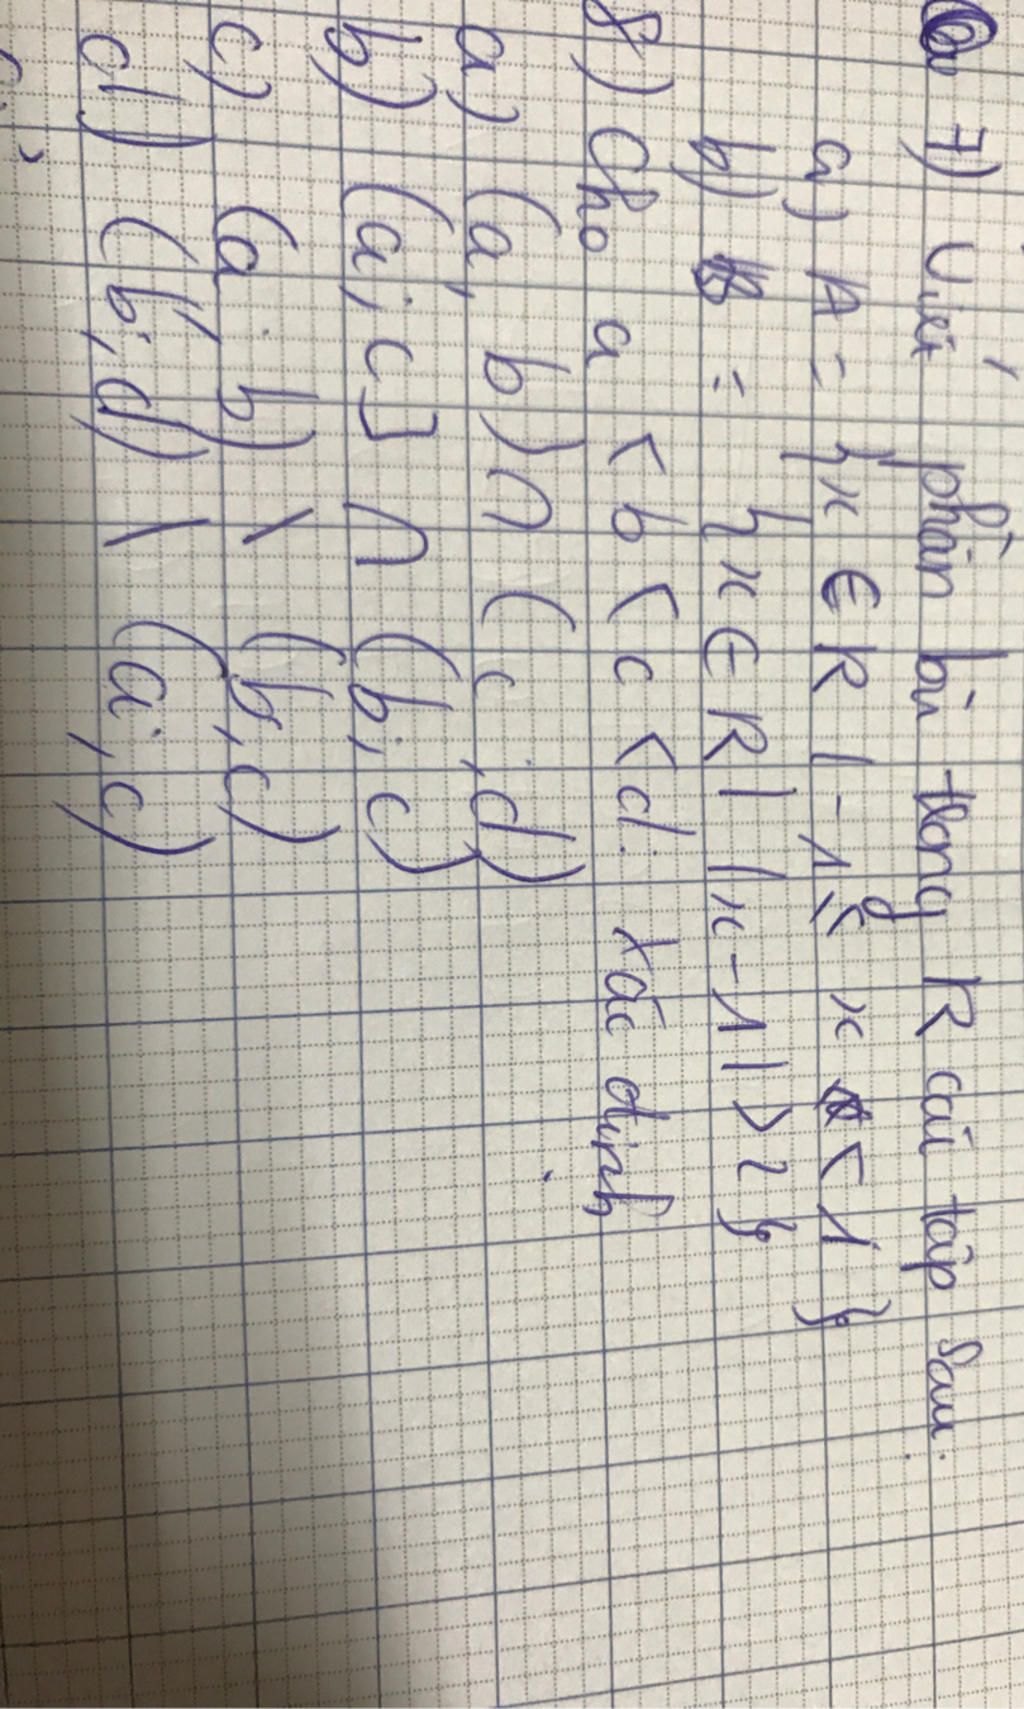 7) Viết phần bù trong R các tập sau:
a) A = {x ∈ R | -1 ≤ x < 1}
b) B = {x ∈ R | |x-1| > 2}
8) Cho a < b < c < d. Xác định
a) (a; b) ∩ (c; d)
b) (a; c] ∩ (b; c)
c) (a; b) \ (b; c)
d) (b; d) \ (a; c)